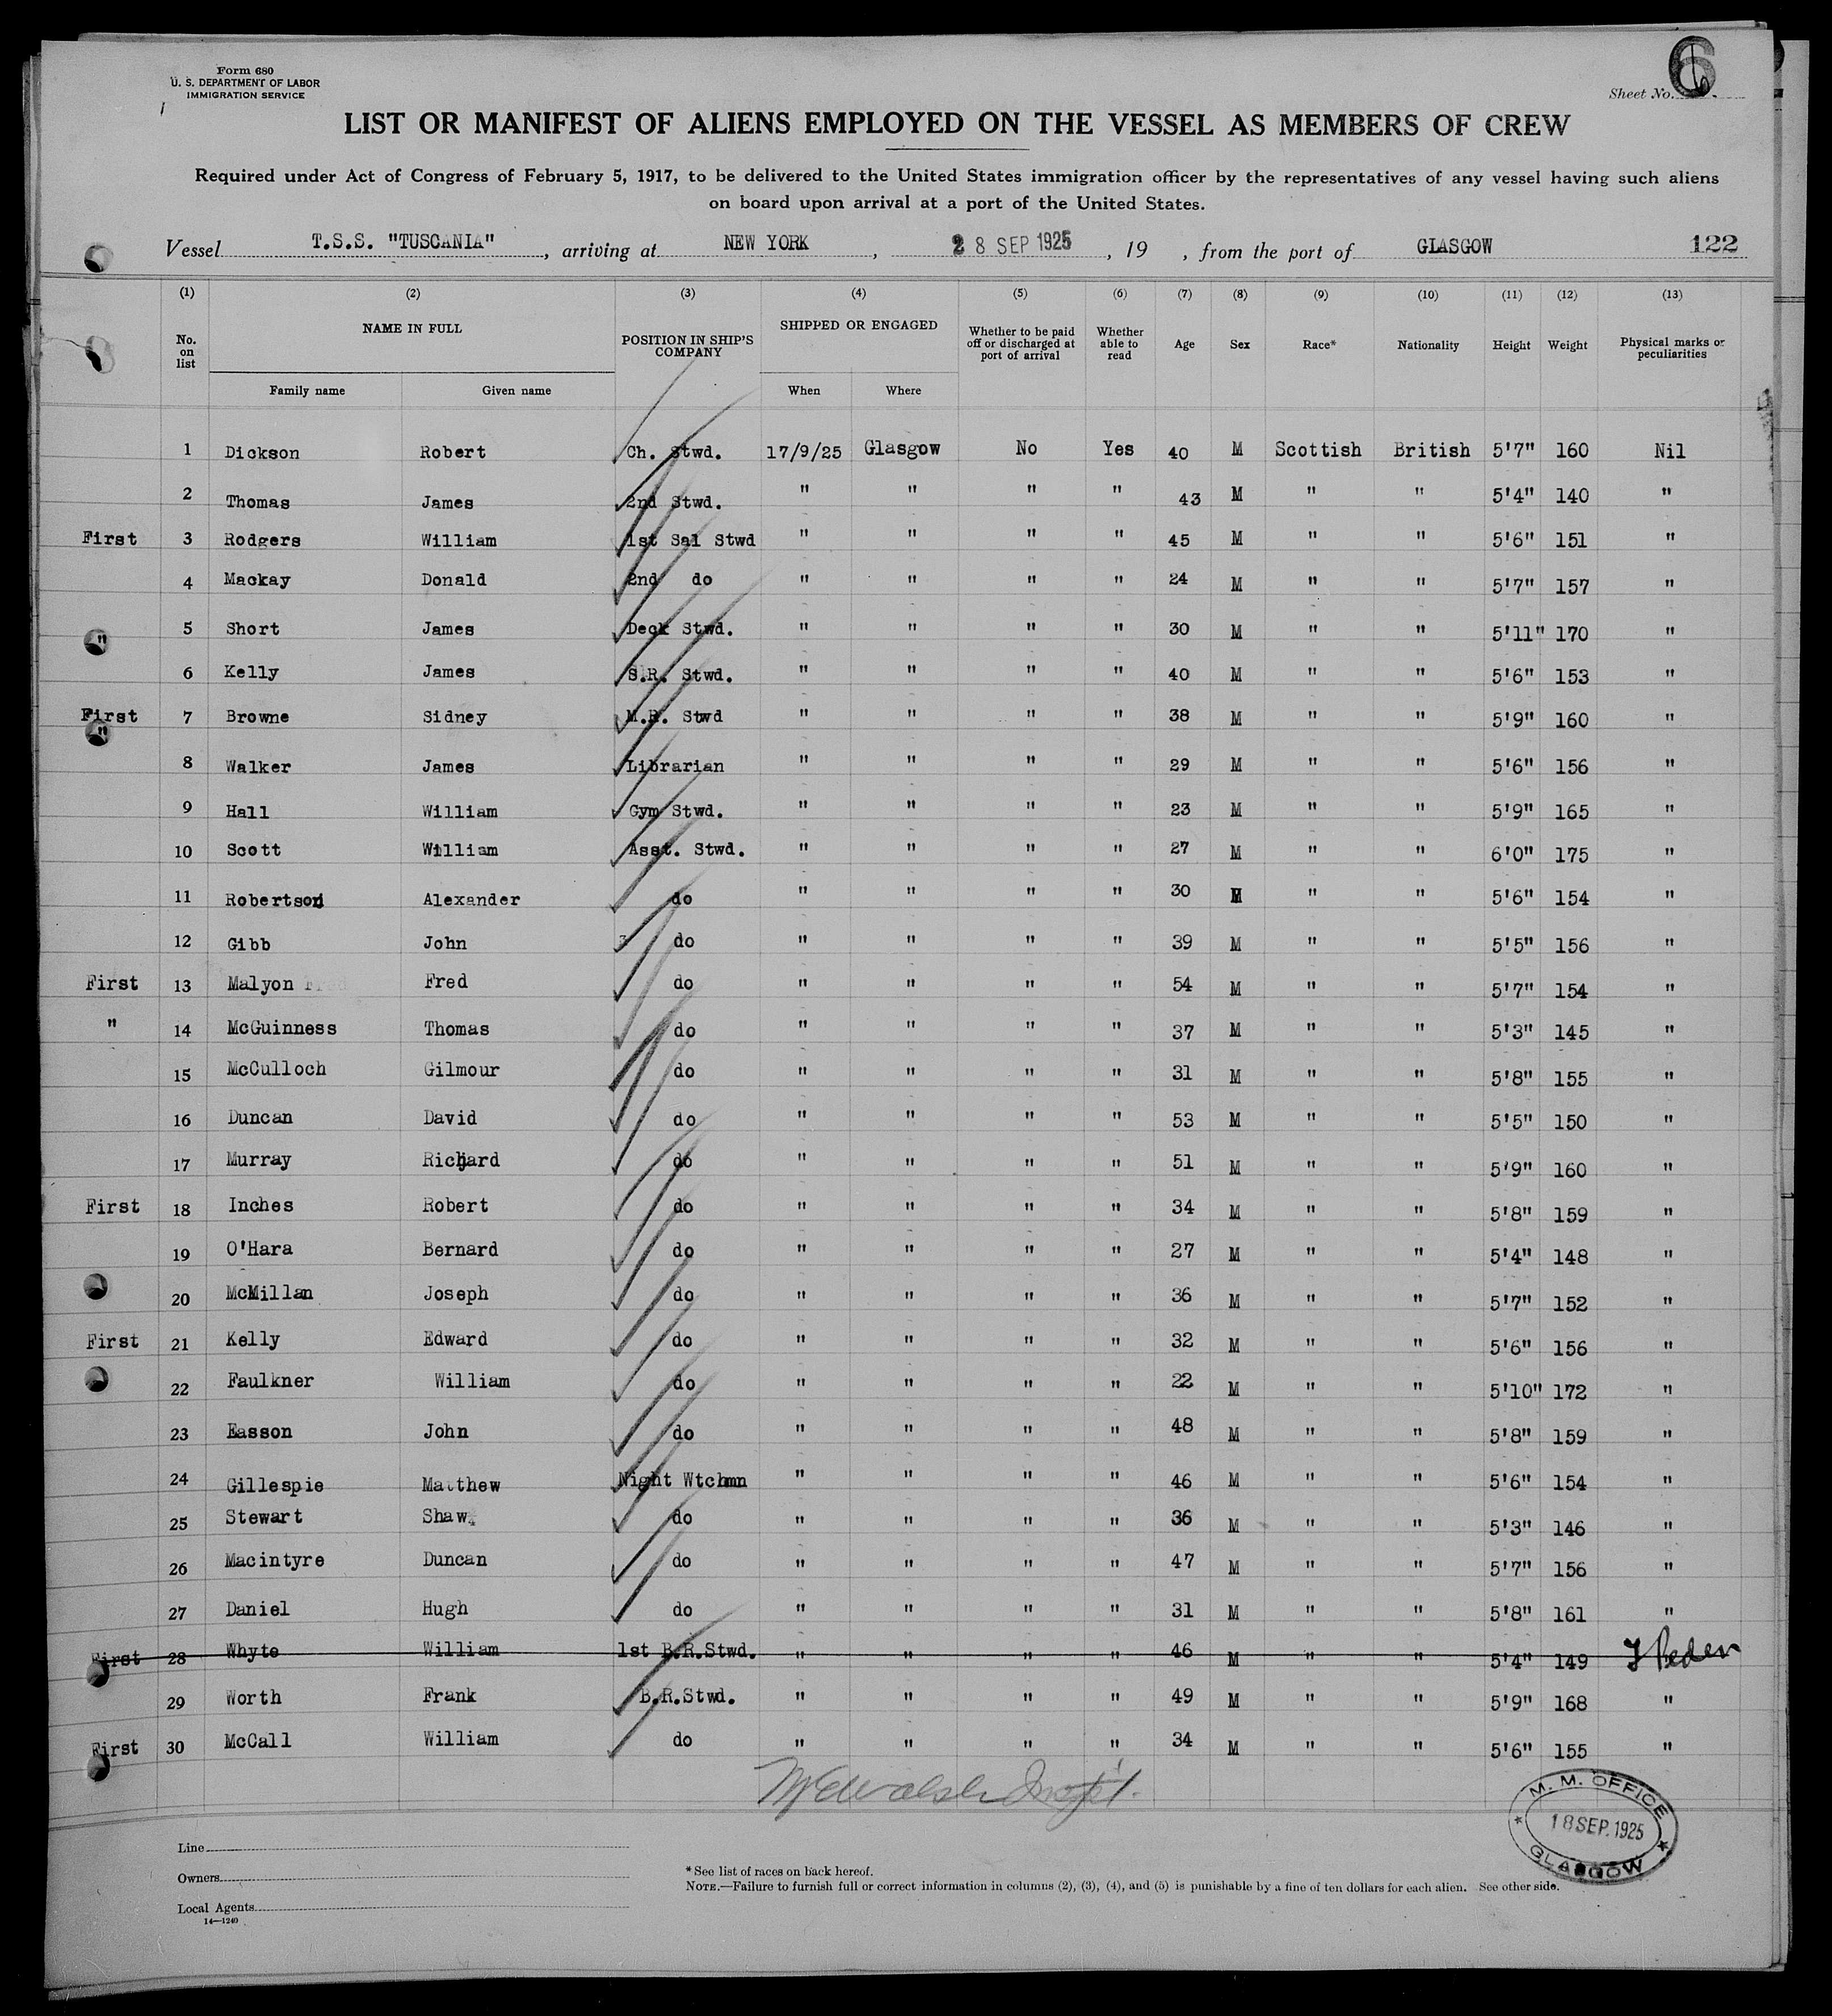 Form 680
U. S. DEPARTMENT OF LABOR
IMMIGRATION SERVICE
Sheet No. 6
LIST OR MANIFEST OF ALIENS EMPLOYED ON THE VESSEL AS MEMBERS OF CREW
Required under Act of Congress of February 5, 1917, to be delivered to the United States immigration officer by the representatives of any vessel having such aliens
on board upon arrival at a port of the United States.
Vessel T.S.S. "TUSCANIA", arriving at NEW YORK, 28 SEP 1925, 19 , from the port of GLASGOW 122
(1) (2) (3) (4) (5) (6) (7) (8) (9) (10) (11) (12) (13)
No. on list NAME IN FULL POSITION IN SHIP'S COMPANY SHIPPED OR ENGAGED Whether to be paid off or discharged at port of arrival Whether able to read Age Sex Race* Nationality Height Weight Physical marks or peculiarities
Family name Given name When Where
1 Dickson Robert Ch. Stwd. 17/9/25 Glasgow No Yes 40 M Scottish British 5'7" 160 Nil
2 Thomas James 2nd Stwd. " " " " 43 M " " 5'4" 140 "
First 3 Rodgers William 1st Sal Stwd " " " " 45 M " " 5'6" 151 "
4 Mackay Donald 2nd do " " " " 24 M " " 5'7" 157 "
" 5 Short James Deck Stwd. " " " " 30 M " " 5'11" 170 "
6 Kelly James S.R. Stwd. " " " " 40 M " " 5'6" 153 "
First 7 Browne Sidney M.R. Stwd " " " " 38 M " " 5'9" 160 "
" 8 Walker James Librarian " " " " 29 M " " 5'6" 156 "
9 Hall William Gym Stwd. " " " " 23 M " " 5'9" 165 "
10 Scott William Asst. Stwd. " " " " 27 M " " 6'0" 175 "
11 Robertson Alexander do " " " " 30 M " " 5'6" 154 "
12 Gibb John do " " " " 39 M " " 5'5" 156 "
First 13 Malyon Fred do " " " " 54 M " " 5'7" 154 "
" 14 McGuinness Thomas do " " " " 37 M " " 5'3" 145 "
15 McCulloch Gilmour do " " " " 31 M " " 5'8" 155 "
16 Duncan David do " " " " 53 M " " 5'5" 150 "
17 Murray Richard do " " " " 51 M " " 5'9" 160 "
First 18 Inches Robert do " " " " 34 M " " 5'8" 159 "
19 O'Hara Bernard do " " " " 27 M " " 5'4" 148 "
20 McMillan Joseph do " " " " 36 M " " 5'7" 152 "
First 21 Kelly Edward do " " " " 32 M " " 5'6" 156 "
22 Faulkner William do " " " " 22 M " " 5'10" 172 "
23 Easson John do " " " " 48 M " " 5'8" 159 "
24 Gillespie Matthew Night Wtchmn " " " " 46 M " " 5'6" 154 "
25 Stewart Shaw. do " " " " 36 M " " 5'3" 146 "
26 Macintyre Duncan do " " " " 47 M " " 5'7" 156 "
27 Daniel Hugh do " " " " 31 M " " 5'8" 161 "
First 28 Whyte William 1st B.R.Stwd. " " " " 46 M " " 5'4" 149 J Peden
29 Worth Frank B.R.Stwd. " " " " 49 M " " 5'9" 168 "
First 30 McCall William do " " " " 34 M " " 5'6" 155 "
Walsh Insp't.
M. M. OFFICE
18 SEP. 1925
GLASGOW
Line
Owners
Local Agents
14—1240
* See list of races on back hereof.
NOTE.—Failure to furnish full or correct information in columns (2), (3), (4), and (5) is punishable by a fine of ten dollars for each alien. See other side.